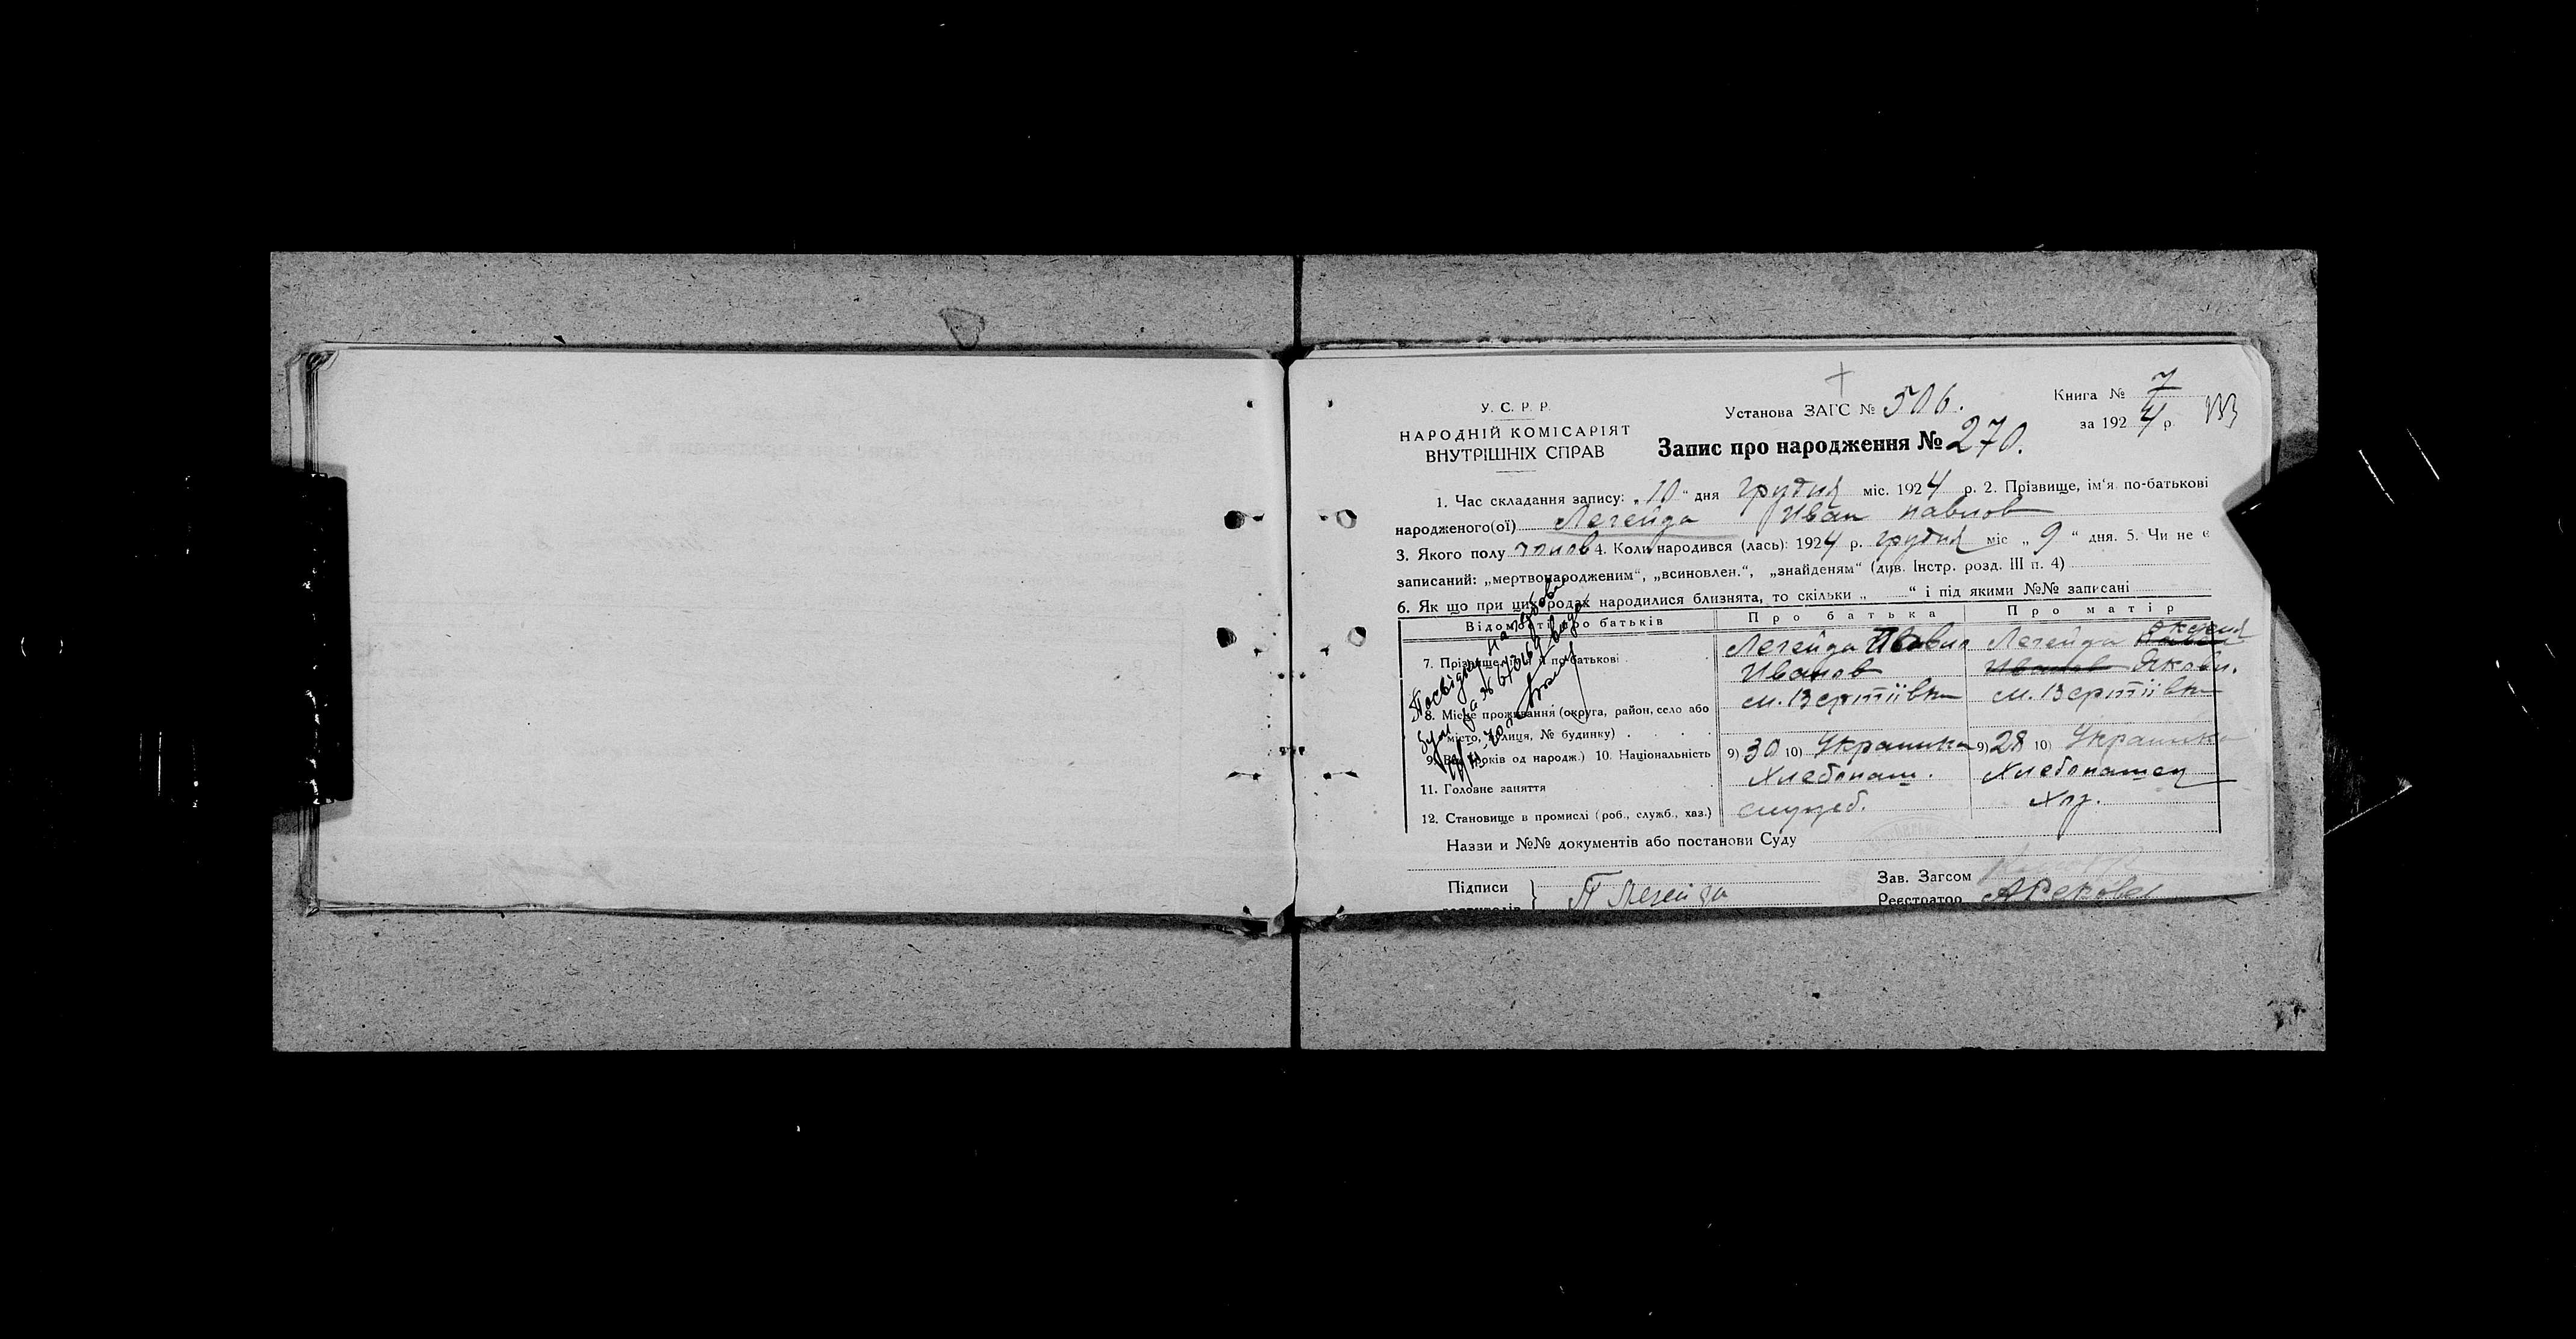 У. С. Р. Р.
НАРОДНІЙ КОМІСАРІЯТ
ВНУТРІШНІХ СПРАВ
Установа ЗАГС № 506.
Запис про народження № 270.
Книга № 7
за 1924 р.
1. Час складання запису: „10“ дня грудня міс. 1924 р. 2. Прізвище, ім‘я по-батькові
народженого(ої) Легейда Иван Павлов
3. Якого полу чолов 4. Коли народився (лась): 1924 р. грудня міс „9“ дня. 5. Чи не є
записаний: „мертвонародженим“, „всиновлен.“, „знайденям“ (див. Інстр. розд. III п. 4)
6. Як що при цих родах народилися близнята, то скільки „ “ і під якими №№ записані
Відомості про батьків Про батька Про матір
7. Прізвище, ім‘я по-батькові Легейда Павло Легейда
Иванов Иванов Якови.
8. Місце проживання (округа, район, село або м. Вертіївка м. Вертіївка
місто, вулиця, № будинку)
9. Вік (років од народж.) 10. Національність 9) 30 10) Украинка 9) 28 10) Украинка
11. Головне заняття Хлебопаш. Хлебопашец
12. Становище в промислі (роб., служб., хаз.) служб. Хоз.
Назви и №№ документів або постанови Суду
Підписи П Легейда
Зав. Загсом
Реєстратор